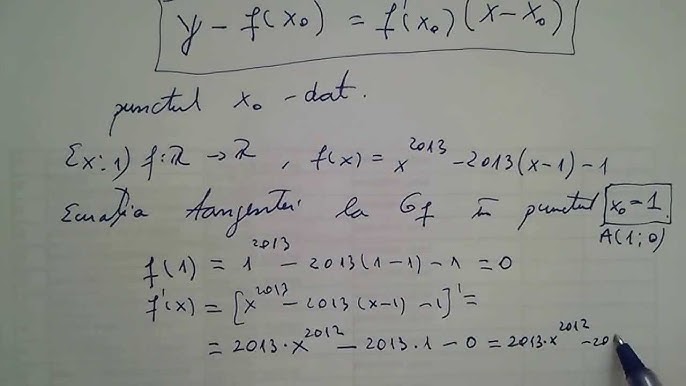 y - f(x₀) = f'(x₀)(x - x₀)
punctul x₀ - dat.
Ex: 1) f: ℝ → ℝ , f(x) = x²⁰¹³ - 2013(x-1) - 1
Ecuația tangentei la Gf în punctul x₀ = 1
A(1; 0)
f(1) = 1²⁰¹³ - 2013(1-1) - 1 = 0
f'(x) = [x²⁰¹³ - 2013(x-1) - 1]' =
= 2013·x²⁰¹² - 2013·1 - 0 = 2013·x²⁰¹² - 20